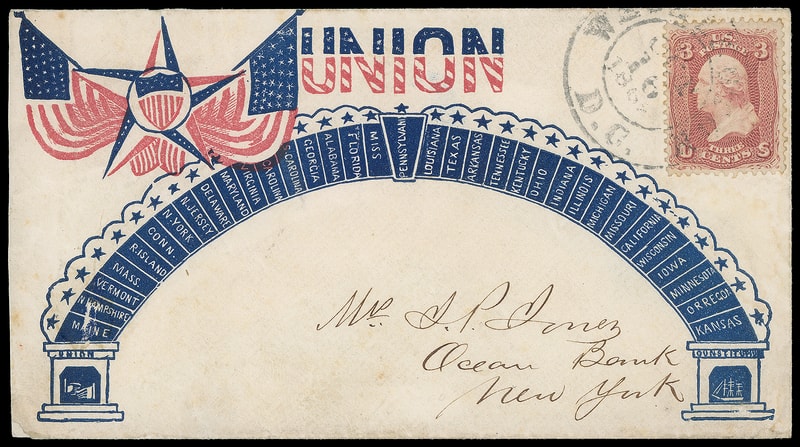 UNION
D.C.
3 U.S. 3
POSTAGE
THREE
CENTS
MAINE
N.HAMPSHIRE
VERMONT
MASS.
R.ISLAND
CONN.
N.YORK
N.JERSEY
DELAWARE
MARYLAND
VIRGINIA
N.CAROLINA
S.CAROLINA
GEORGIA
ALABAMA
FLORIDA
MISS
PENNSYLVANIA
LOUISIANA
TEXAS
ARKANSAS
TENNESSEE
KENTUCKY
OHIO
INDIANA
ILLINOIS
MICHIGAN
MISSOURI
CALIFORNIA
WISCONSIN
IOWA
MINNESOTA
ORREGON
KANSAS
UNION
CONSTITUTION
Mr. J. P. Jones
Ocean Bank
New York